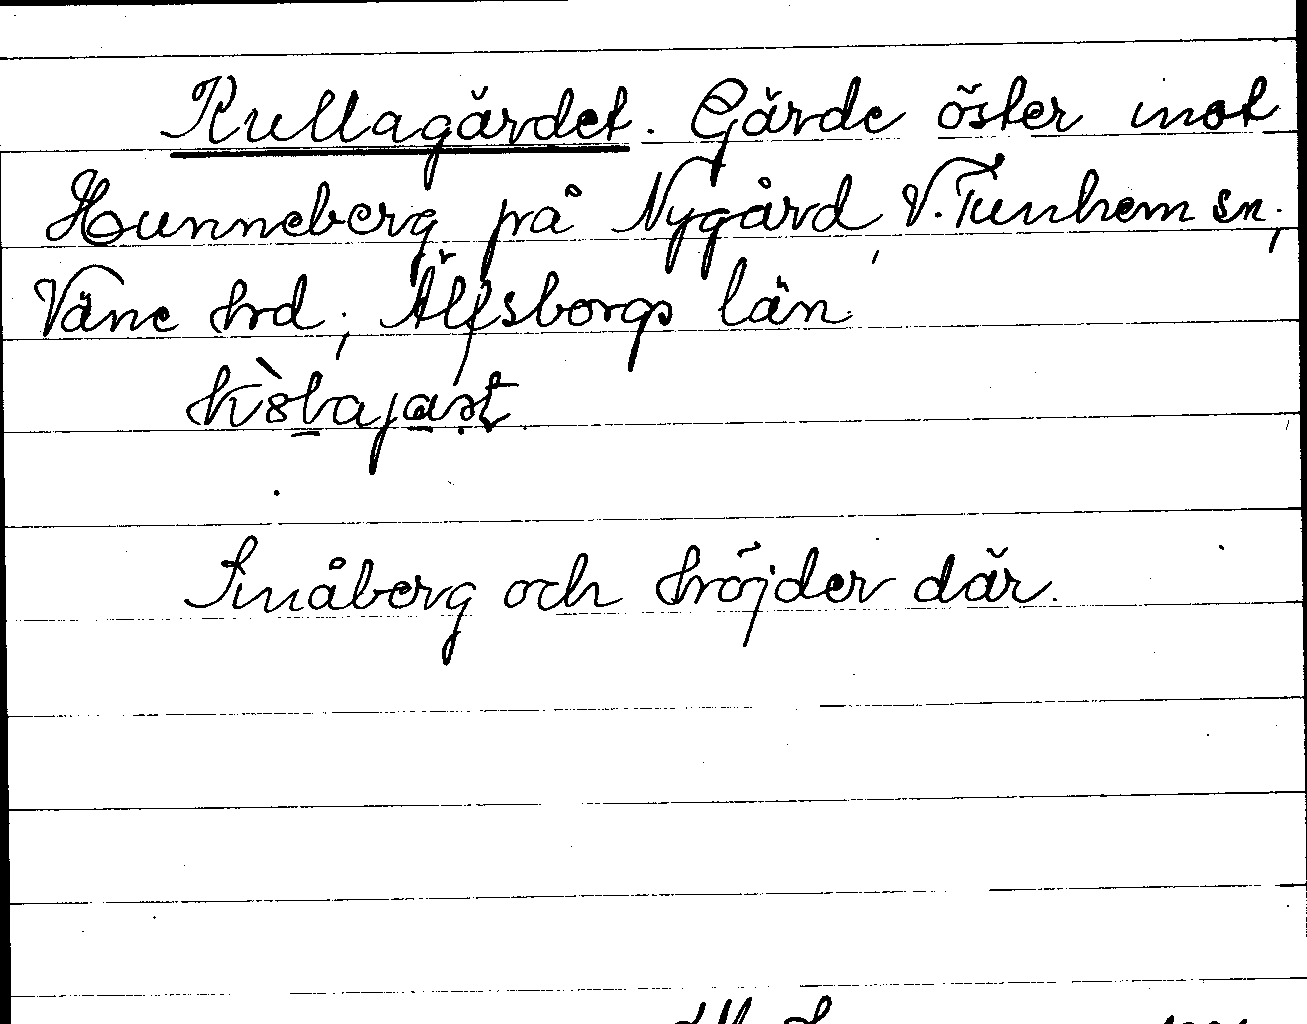 Kullagärdet. Gärde öster mot
Hunneberg på Nygård, V. Tunhem sn.,
Väne hd, Älfsborgs län
Småberg och höjder där.